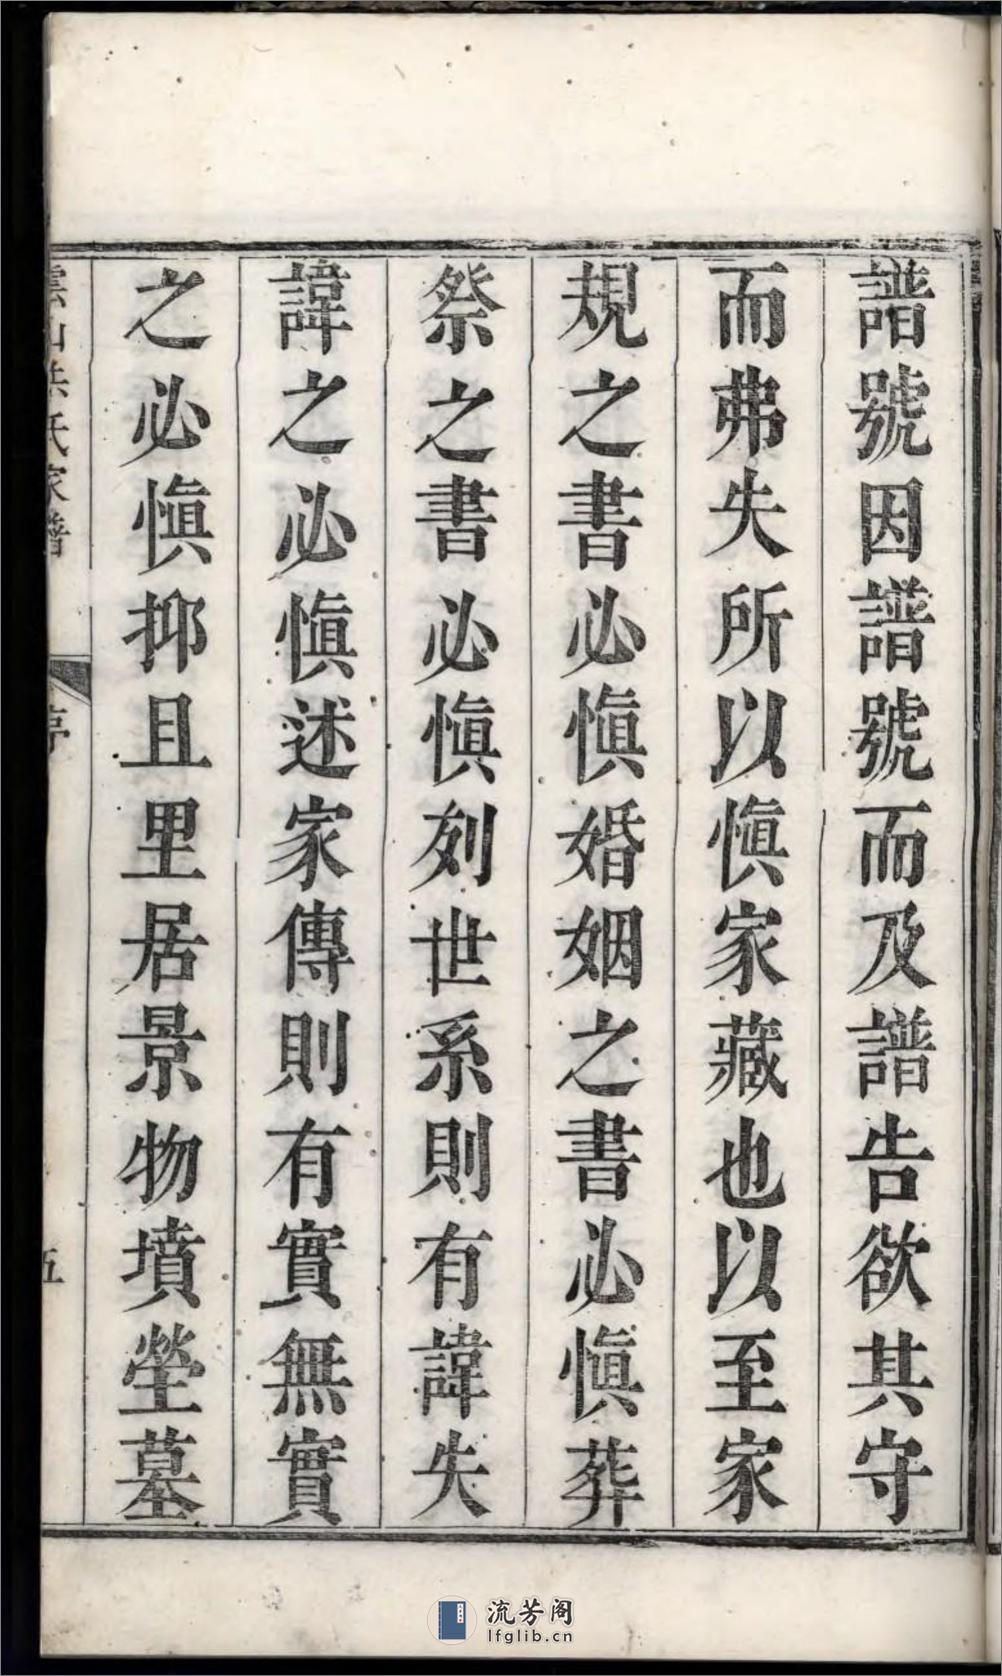 譜號因譜號而及譜告欲其守
而弗失所以愼家藏也以至家
規之書必愼婚姻之書必愼葬
祭之書必愼刻世系則有諱失
諱之必愼述家傳則有實無實
之必愼抑且里居景物墳塋墓
氏家譜
序
五
流芳阁
lfglib.cn